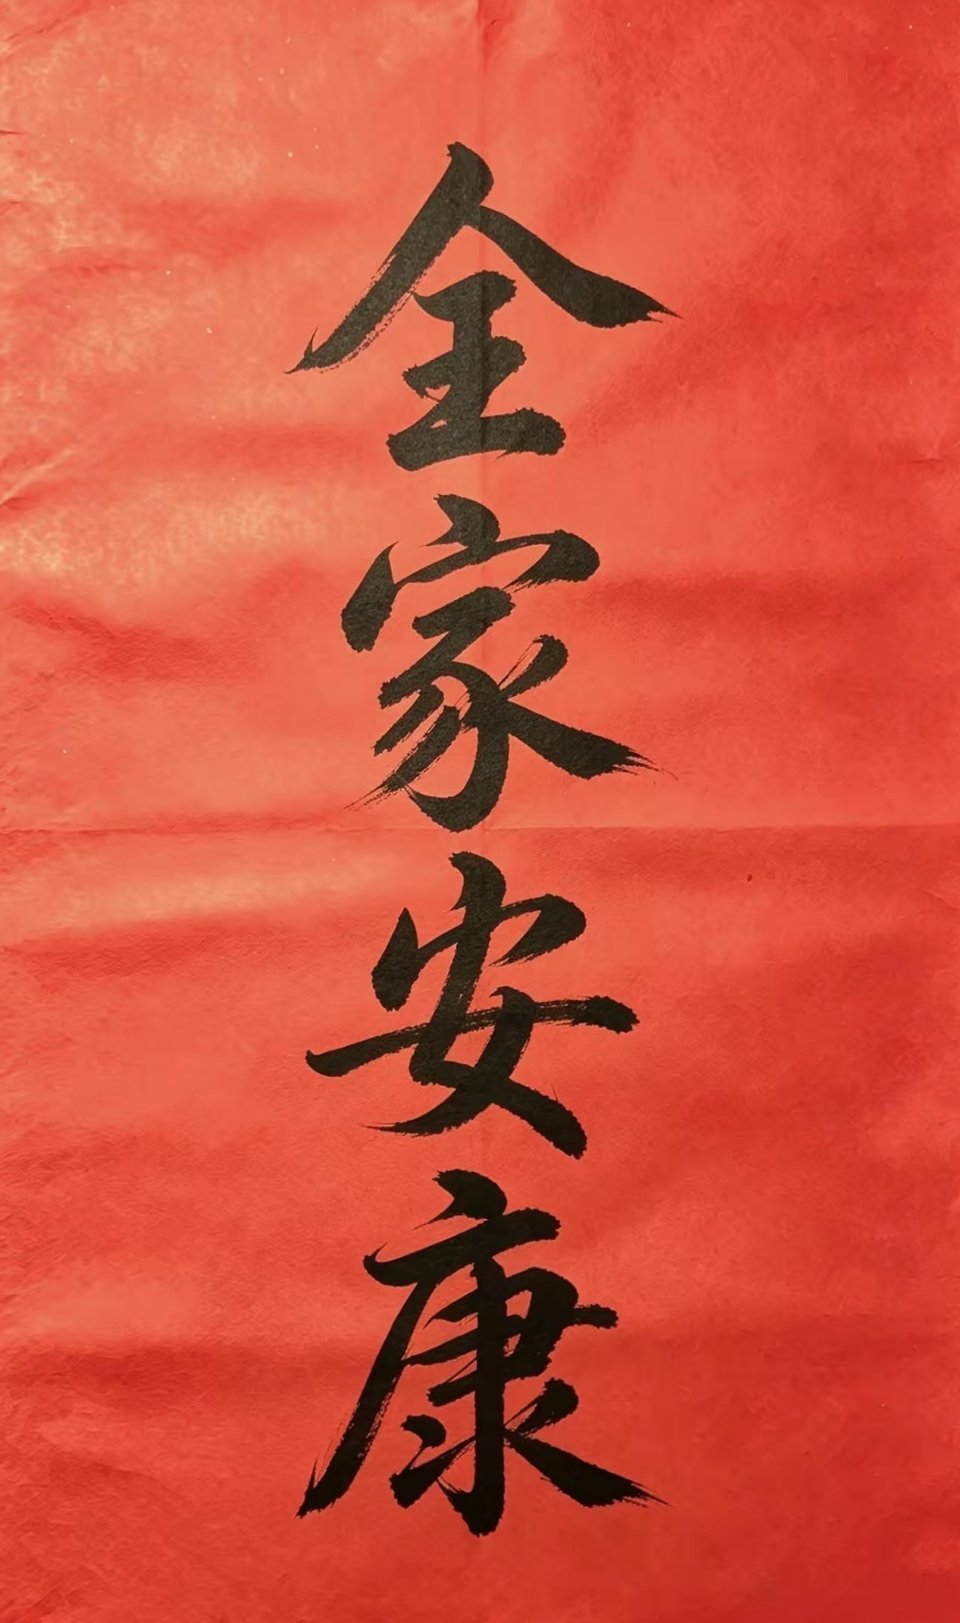 全家安康